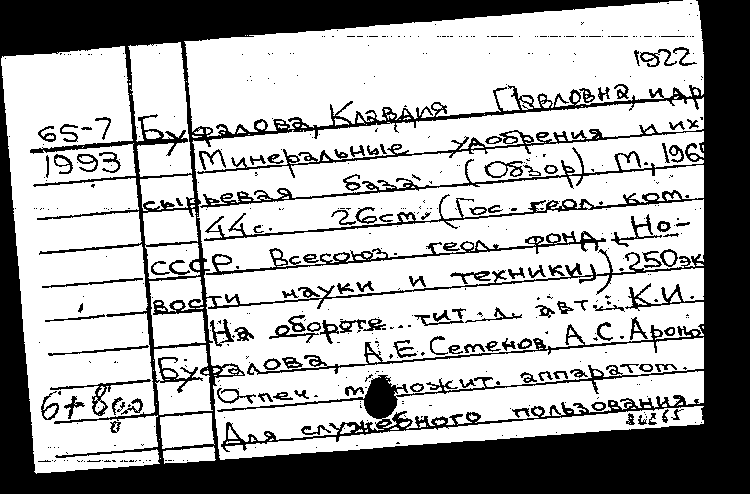 1922
65-7 Буфалова, Клавдия Павловна, и др
1993 Минеральные удобрения и их
сырьевая база. (Обзор). М., 196
44 с. 26 см. (Гос. геол. ком.
СССР. Всесоюз. геол. фонд. [Но-
вости науки и техники]). 250 эк
На обороте тит. л. авт.: К.И.
Буфалова, А.Е. Семенов, А.С. Арон
Отпеч. множит. аппаратом.
Для служебного пользования.